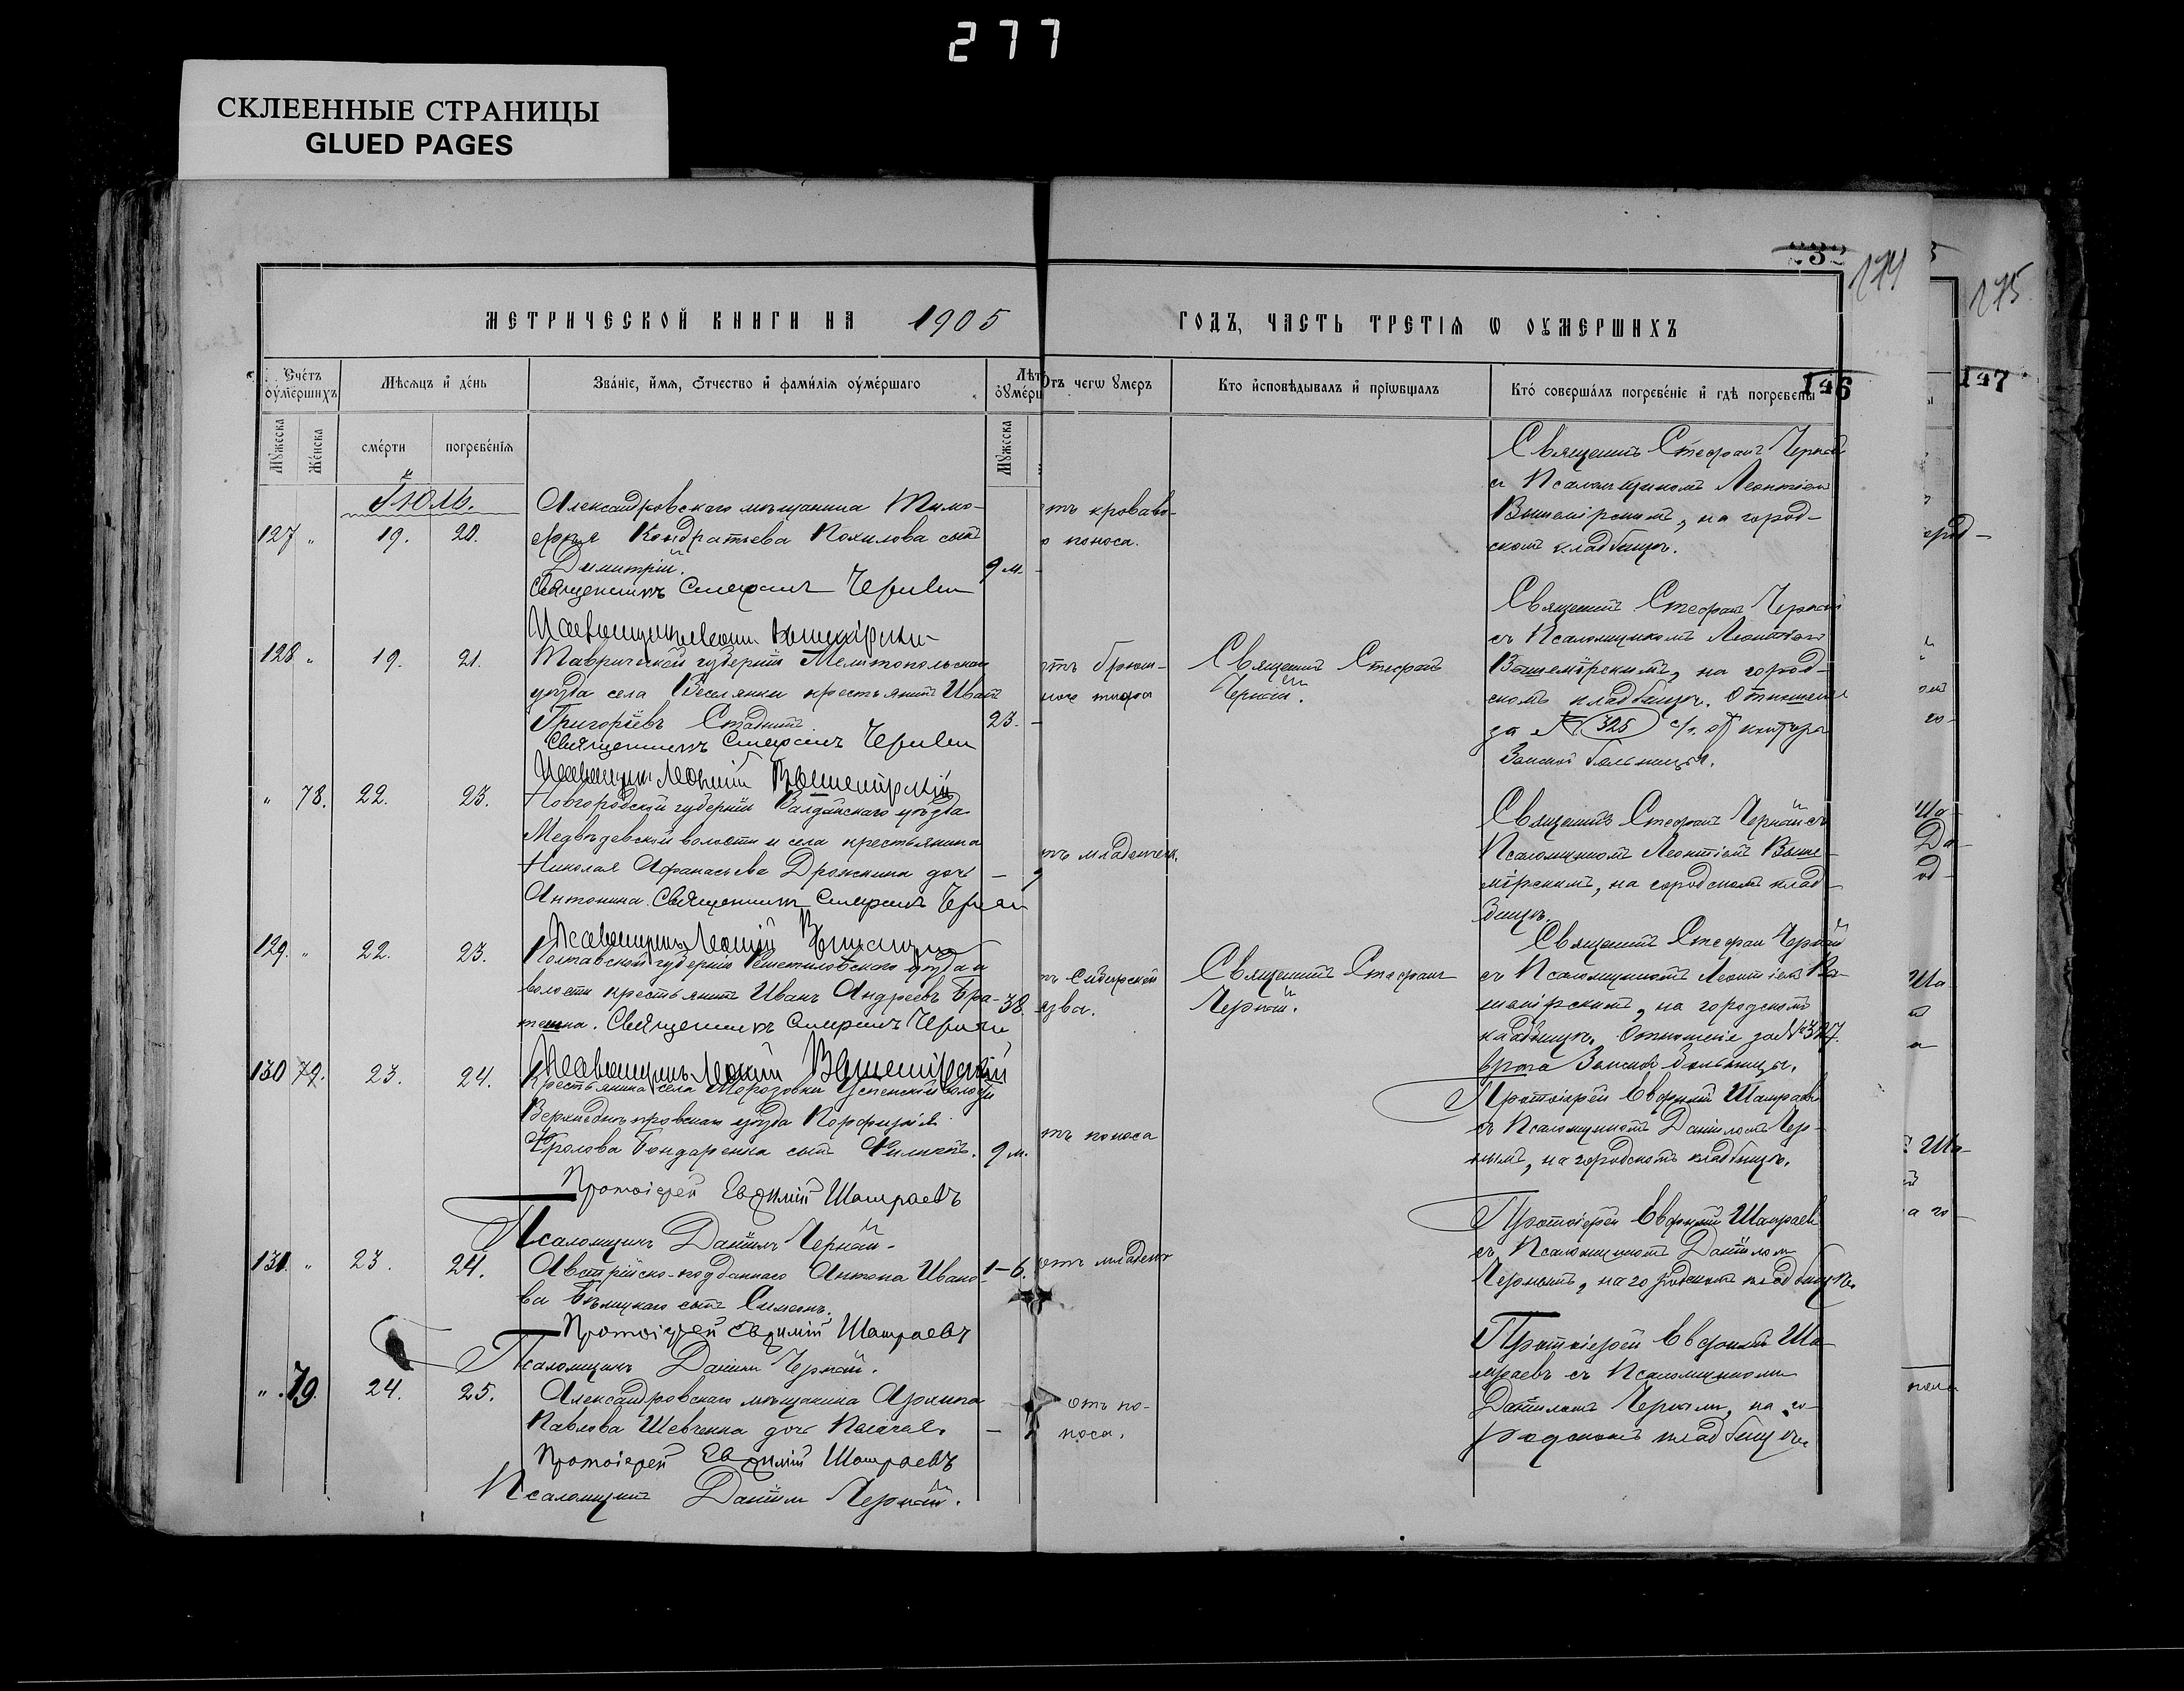 277
СКЛЕЕННЫЕ СТРАНИЦЫ
GLUED PAGES
232
174
175
МЕТРИЧЕСКОЙ КНИГИ НА 1905 ГОДЪ, ЧАСТЬ ТРЕТІѦ Ѡ ОУМЕРШИХЪ
146
147
Счетъ оумершихъ
Мѣсяцъ и день
Званіе, имя, отчество и фамилія оумершаго
Лѣт оумерш
Отъ чегѡ умеръ
Кто исповѣдывалъ и пріѡбщалъ
Кто совершалъ погребеніе и гдѣ погребены
Мужеска
Женска
смерти
погребенія
Мужеска
Іюль.
127 „ 19. 20.
Александровскаго мѣщанина Тимо-
фея Кондратьева Похилова сынъ
Димитрій.
9 м.
отъ кроваво-
о поноса.
Священникъ Стефанъ Черный
съ Псаломщикомъ Леонтіемъ
Вышемірскимъ, на город-
скомъ кладбищѣ.
Священникъ Стефанъ Черный
Псаломщикъ Леонтій Вышемірскій
128 „ 19. 21.
Таврической губерніи Мелитопольскаго
уѣзда села Веселянки крестьянинъ Иванъ
Григоріевъ Стадникъ
23. –
отъ брюш-
ного тифа
Священникъ Стефанъ
Черный.
Священникъ Стефанъ Черный
съ Псаломщикомъ Леонтіемъ
Вышемірскимъ, на город-
скомъ кладбищѣ. Отношеніе
за № 325 с/г. отъ конторы
Земской больницы.
Священникъ Стефанъ Черный
Псаломщикъ Леонтій Вышемірскій
„ 78. 22. 23.
Новгородской губерніи Валдайскаго уѣзда
Медвѣдевской волости и села крестьянина
Николая Афанасьева Дрожжина дочь
Антонина. Священникъ Стефанъ Черный
Псаломщикъ Леонтій
отъ младенческ.
Священникъ Стефанъ Черный съ
Псаломщикомъ Леонтіемъ Выше-
мірскимъ, на городскомъ клад-
бищѣ.
129. „ 22. 23.
Полтавской губерніи Решетиловского уѣзда и
волости крестьянинъ Иванъ Андреевъ Бра-
тешка. Священникъ Стефанъ Черный
38.
тъ Сибирской
язвы.
Священникъ Стефанъ
Черный.
Священникъ Стефанъ Черный
съ Псаломщикомъ Леонтіемъ Вы-
шемірскимъ, на городскомъ
кладбищѣ. Отношеніе за № 327.
врача Земской больницы.
Псаломщикъ Леонтій Вышемірскій
130 79. 23. 24.
Крестьянина села Морозовки Успенской волости
Верхнеднѣпровскаго уѣзда Порфирія
Фролова Бондаренка сынъ Филиппъ.
9 м.
отъ поноса
Протоіерей Евфимій Шамраевъ
съ Псаломщикомъ Даніиломъ Чер-
нымъ, на городскомъ кладбищѣ.
Протоіерей Евфимій Шамраевъ
Псаломщикъ Даніилъ Черный.
131. „ 23. 24.
Австрійско-подданнаго Антона Ивано-
ва Бѣлицкаго сынъ Симеонъ.
1–6.
отъ младенч
Протоіерей Евфимій Шамраевъ
съ Псаломщикомъ Даніиломъ
Чернымъ, на городскомъ кладбищѣ.
Протоіерей Евфимій Шамраевъ
Псаломщикъ Даніилъ Черный.
„ 79. 24. 25.
Александровскаго мѣщанина Архипа
Павлова Шевченка дочь Пелагея.
–
отъ по-
носа.
Протоіерей Евфимій Ша-
мраевъ съ Псаломщикомъ
Даніиломъ Чернымъ, на го-
родскомъ кладбищѣ.
Протоіерей Евфимій Шамраевъ
Псаломщикъ Даніилъ Черный.